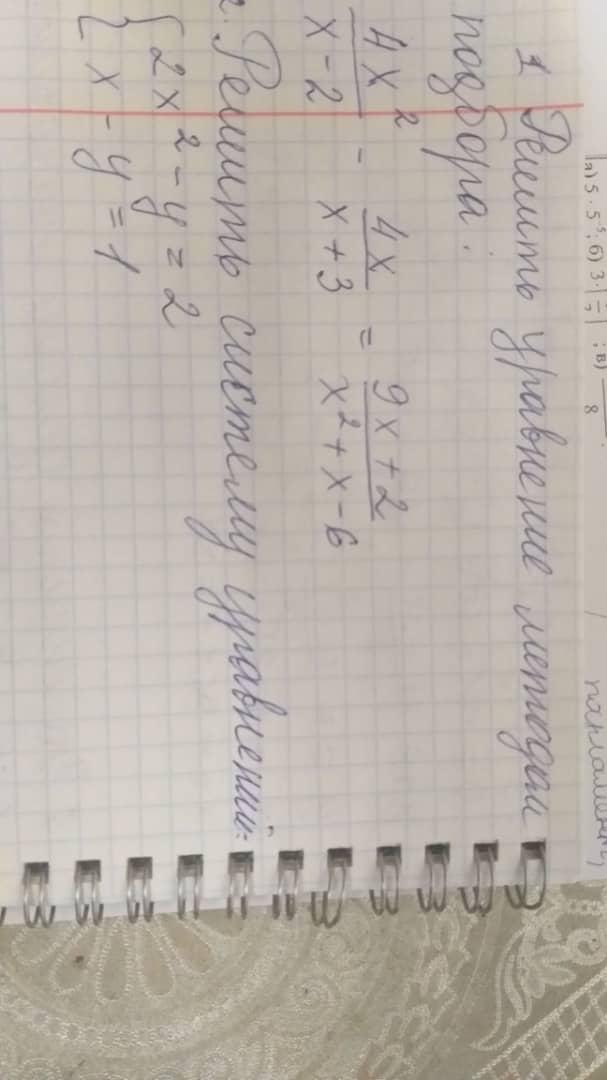 а) 5 · 5⁻⁵; б) 3 ·
; в)
8
1 Решить уравнение методом
подбора:
4x²/(x - 2) - 4x/(x + 3) = (9x + 2)/(x² + x - 6)
2. Решить систему уравнений:
{ 2x² - y = 2
x - y = 1